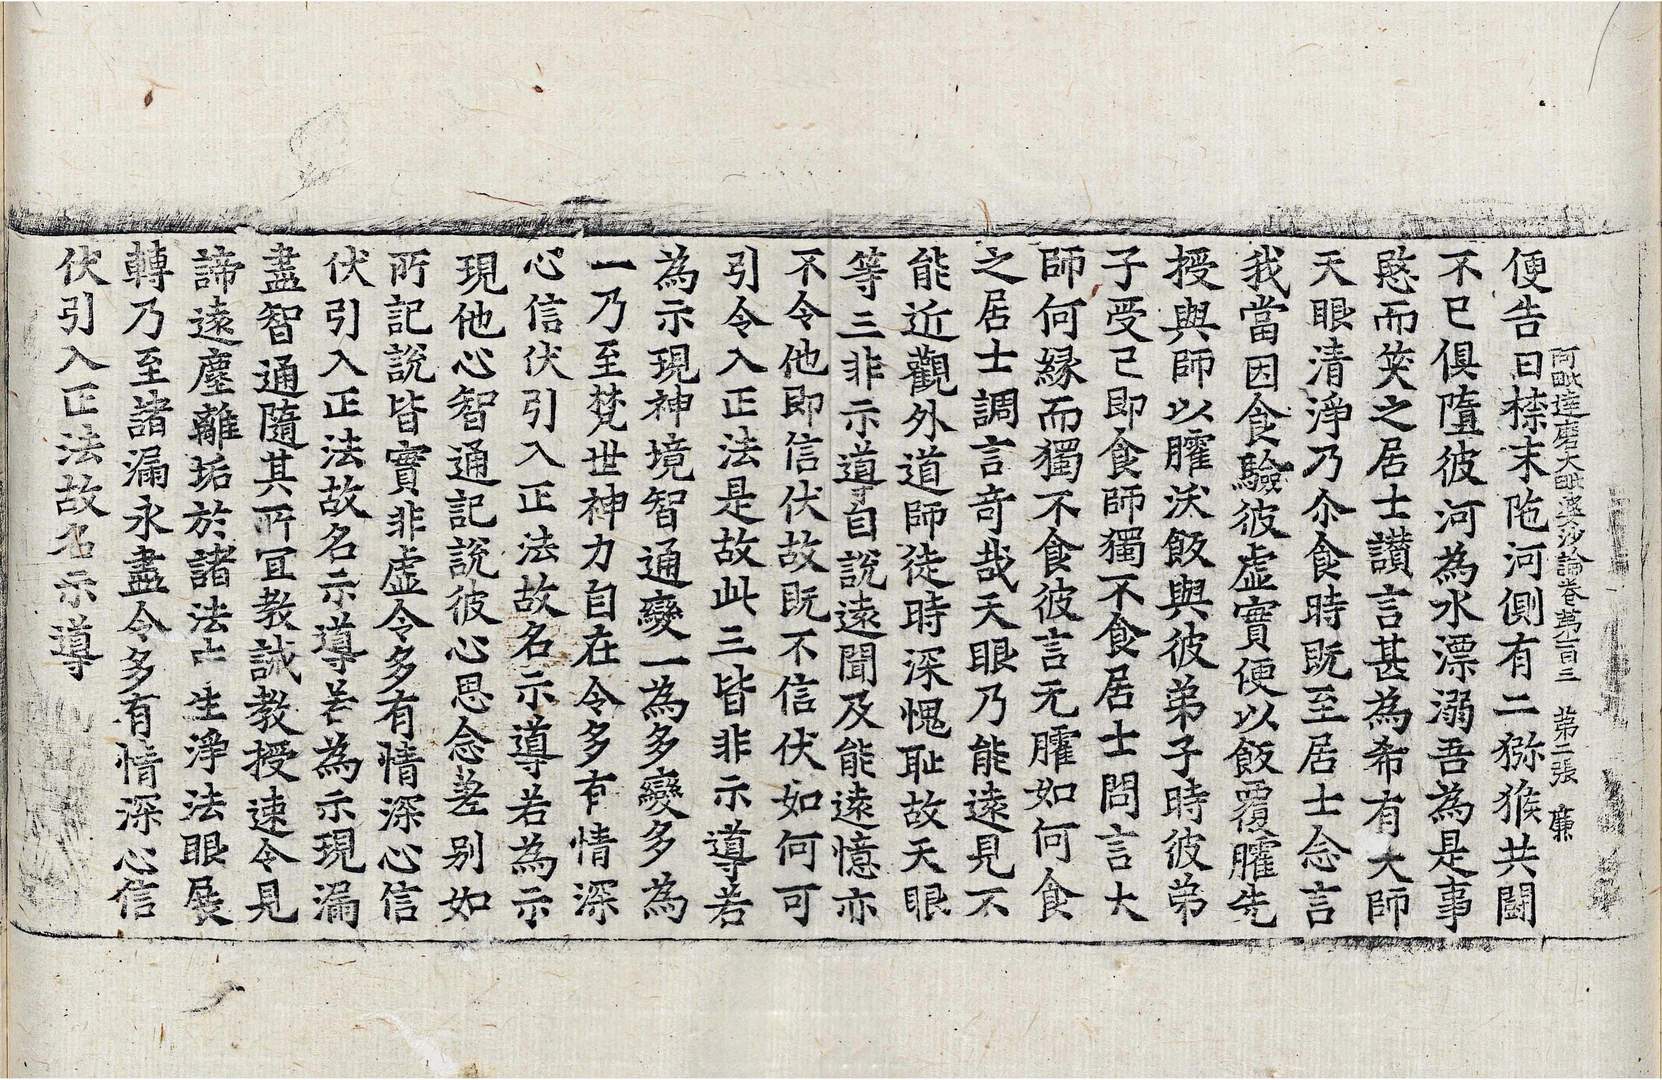 阿毗達磨大毗婆沙論卷第一百三　第二張　廉
便告曰㯲末陁河側有二獼猴共鬪
不已俱墮彼河為水漂溺吾為是事
愍而笑之居士讚言甚為希有大師
天眼清淨乃尒食時旣至居士念言
我當因食驗彼虛實便以飯覆臛先
授與師以臛沃飯與彼弟子時彼弟
子受已即食師獨不食居士問言大
師何緣而獨不食彼言无臛如何食
之居士調言奇哉天眼乃能遠見不
能近觀外道師徒時深愧恥故天眼
等三非示道自說遠聞及能遠憶亦
不令他即信伏故旣不信伏如何可
引令入正法是故此三皆非示導若
為示現神境智通變一為多變多為
一乃至梵世神力自在令多有情深
心信伏引入正法故名示導若為示
現他心智通記說彼心思念差別如
所記說皆實非虛令多有情深心信
伏引入正法故名示導若為示現漏
盡智通隨其所宜教誡教授速令見
諦遠塵離垢於諸法中生淨法眼展
轉乃至諸漏永盡令多有情深心信
伏引入正法故名示導